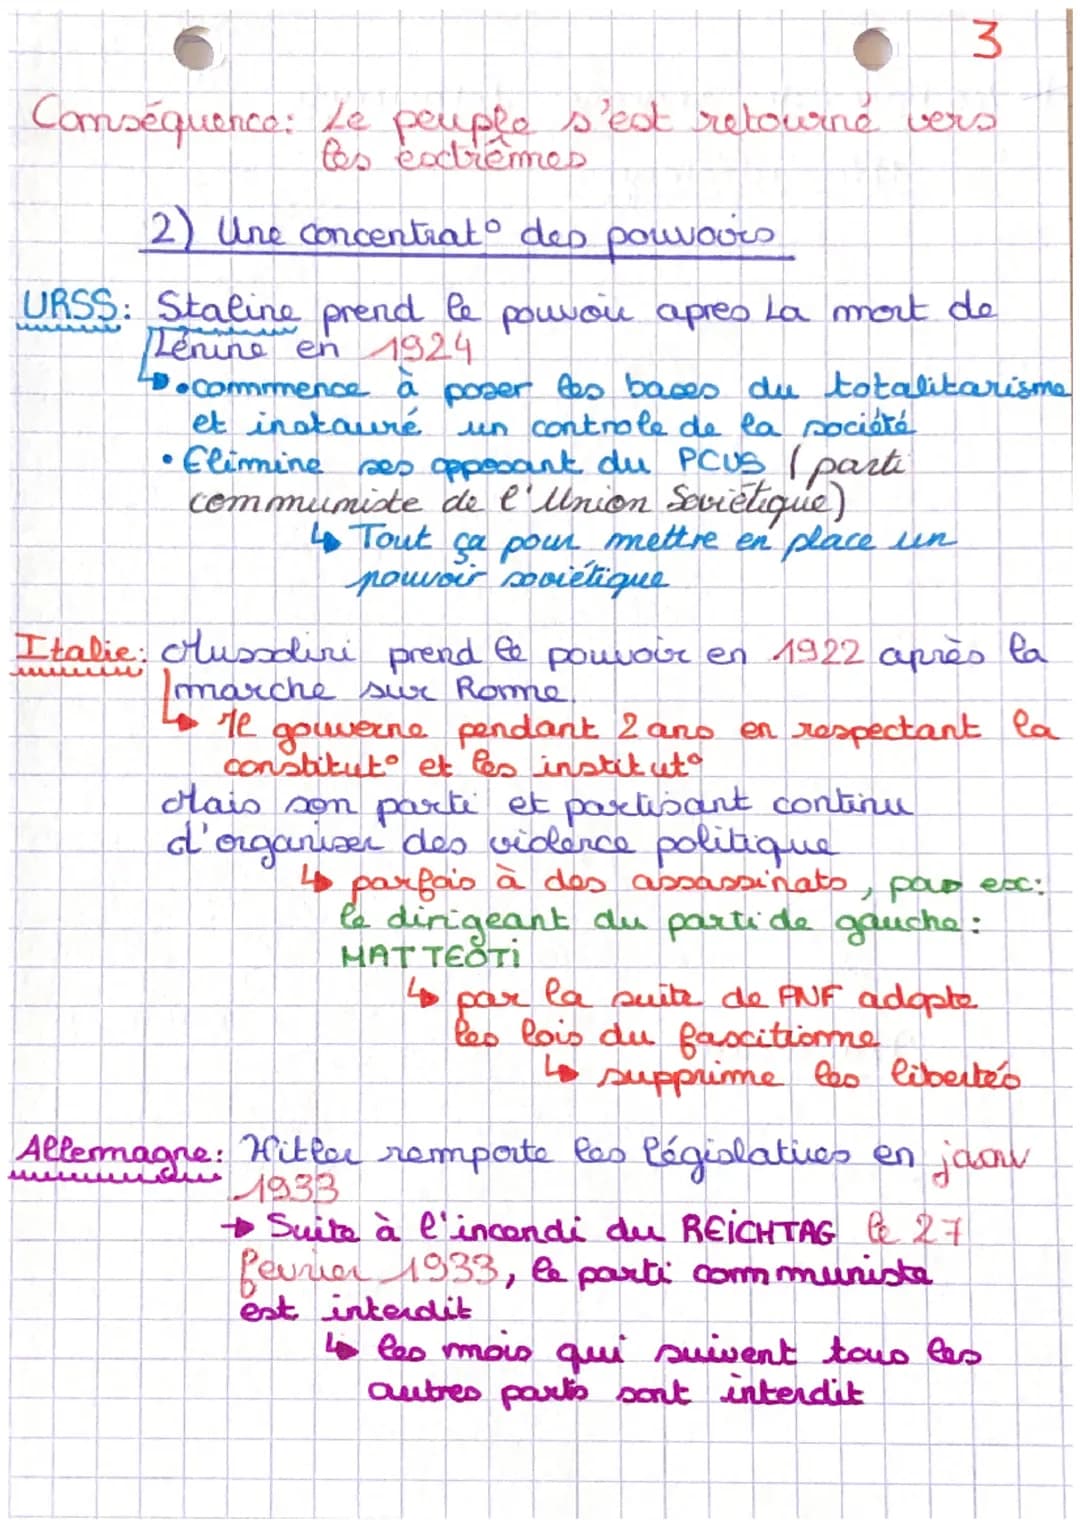 3
Conséquence: Le peuple s'est retourné vers
les extrêmes
2) Une concentrat° des pouvoirs
URSS: Staline prend le pouvoir apres La mort de
Lénine en 1924
↳•commence à poser les bases du totalitarisme
et instauré un controle de la société
• Elimine ses opposant du PCUS (parti
communiste de l'Union Soviétique)
↳ Tout ça pour mettre en place un
pouvoir soviétique
Italie: Mussolini prend le pouvoir en 1922 après la
marche sur Rome.
↳ Il gouverne pendant 2 ans en respectant la
constitut° et les institut°
Mais son parti et partisant continu
d'organiser des violence politique
↳ parfois à des assassinats, par ex:
le dirigeant du parti de gauche:
MATTEOTi
↳ par la suite de PNF adopte
les lois du fascitionne
↳ supprime les libertés
Allemagne: Hitler remporte les législatives en janv
1933
→ Suite à l'incendi du REiCHTAG le 27
fevrier 1933, le parti communiste
est interdit
↳ les mois qui suivent tous les
autres partis sont interdit